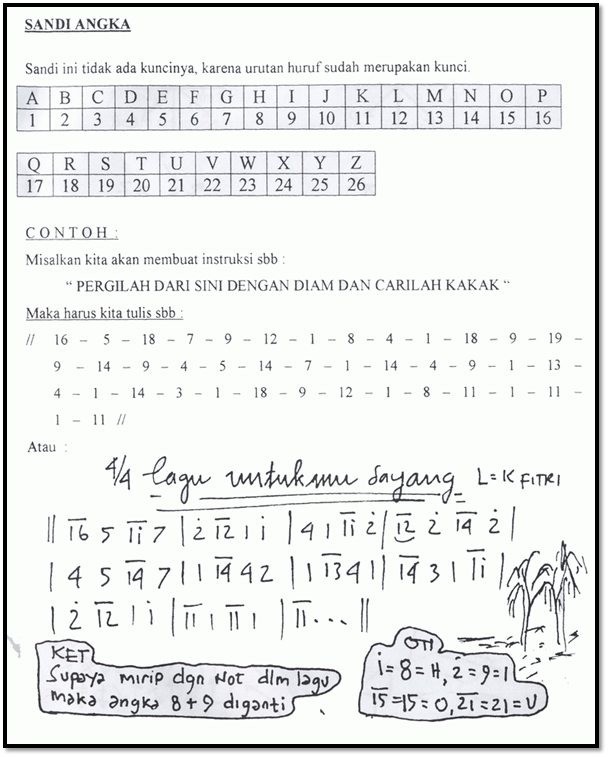 SANDI ANGKA
Sandi ini tidak ada kuncinya, karena urutan huruf sudah merupakan kunci.
A B C D E F G H I J K L M N O P
1 2 3 4 5 6 7 8 9 10 11 12 13 14 15 16
Q R S T U V W X Y Z
17 18 19 20 21 22 23 24 25 26
CONTOH :
Misalkan kita akan membuat instruksi sbb :
“ PERGILAH DARI SINI DENGAN DIAM DAN CARILAH KAKAK “
Maka harus kita tulis sbb :
// 16 – 5 – 18 – 7 – 9 – 12 – 1 – 8 – 4 – 1 – 18 – 9 – 19 –
9 – 14 – 9 – 4 – 5 – 14 – 7 – 1 – 14 – 4 – 9 – 1 – 13 –
4 – 1 – 14 – 3 – 1 – 18 – 9 – 12 – 1 – 8 – 11 – 1 – 11 –
1 – 11 //
Atau :
4/4 Lagu untukmu sayang L=K FITRI
|| 1̅6̅ 5 1̅1̅ 7 | 2̇ 1̅2̅ 1 1̇ | 4 1 1̅1̅ 2̇ | 1̅2̅ 2̇ 1̅4̅ 2̇ |
| 4 5 1̅4̅ 7 | 1 1̅4̅ 4 2 | 1 1̅3̅ 4 1 | 1̅4̅ 3 1 1̅1̅ |
| 2̇ 1̅2̅ 1 1̇ | 1̅1̅ 1 1̅1̅ 1 | 1̅1̅ . . . ||
KET
Supaya mirip dgn Not dlm lagu
maka angka 8 + 9 diganti
1̇ = 8 = H, 2̇ = 9 = I
1̅5̅ = 15 = O, 2̅1̅ = 21 = U